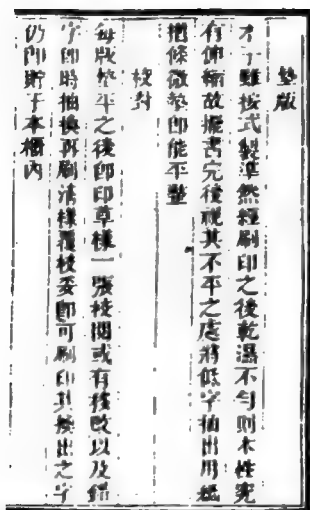 墊版
木子雖按式製準然經刷印之後乾濕不勻則木性究
有伸縮故擺書完後視其不平之處將低字抽出用紙
摺條微墊即能平整
校對
每版墊平之後即印草樣一張校閱或有移改以及錯
字即時抽換再刷清樣覆校妥即可刷印其換出之字
仍即貯于本櫃內